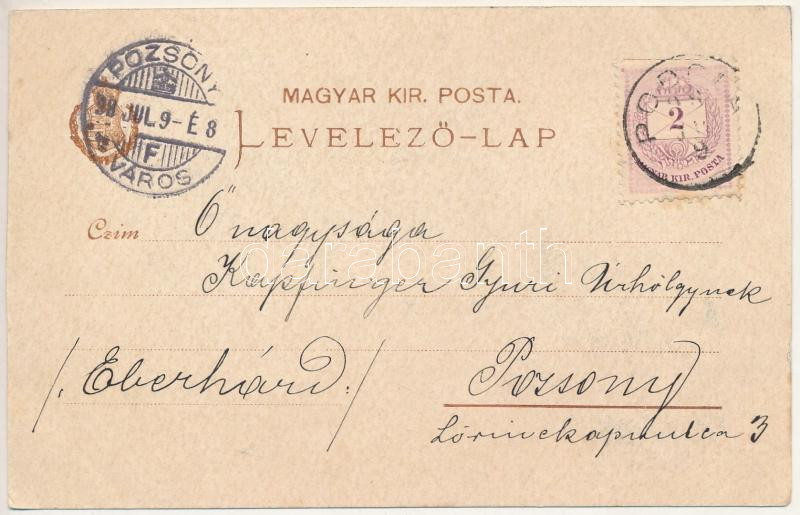 POZSONY
99 JUL. 9 - É 8
F
VÁROS
MAGYAR KIR. POSTA.
LEVELEZŐ-LAP
2
MAGYAR KIR. POSTA
Czim
Ő nagysága
Kapfinger Gyuri Úrhölgynek
/. Eberhárd ./
Pozsony
Lőrinckapuutca 3
darabanth